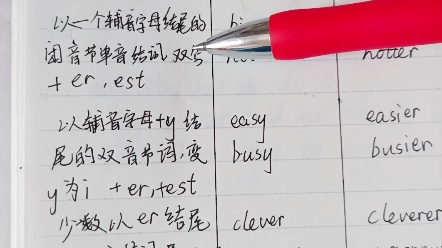 以一个辅音字母结尾的
闭音节单音结词,双写 hotter
+er,est
以辅音字母+y结 easy easier
尾的双音节词,变 busy busier
y为i +er,+est
少数以er结尾 clever cleverer